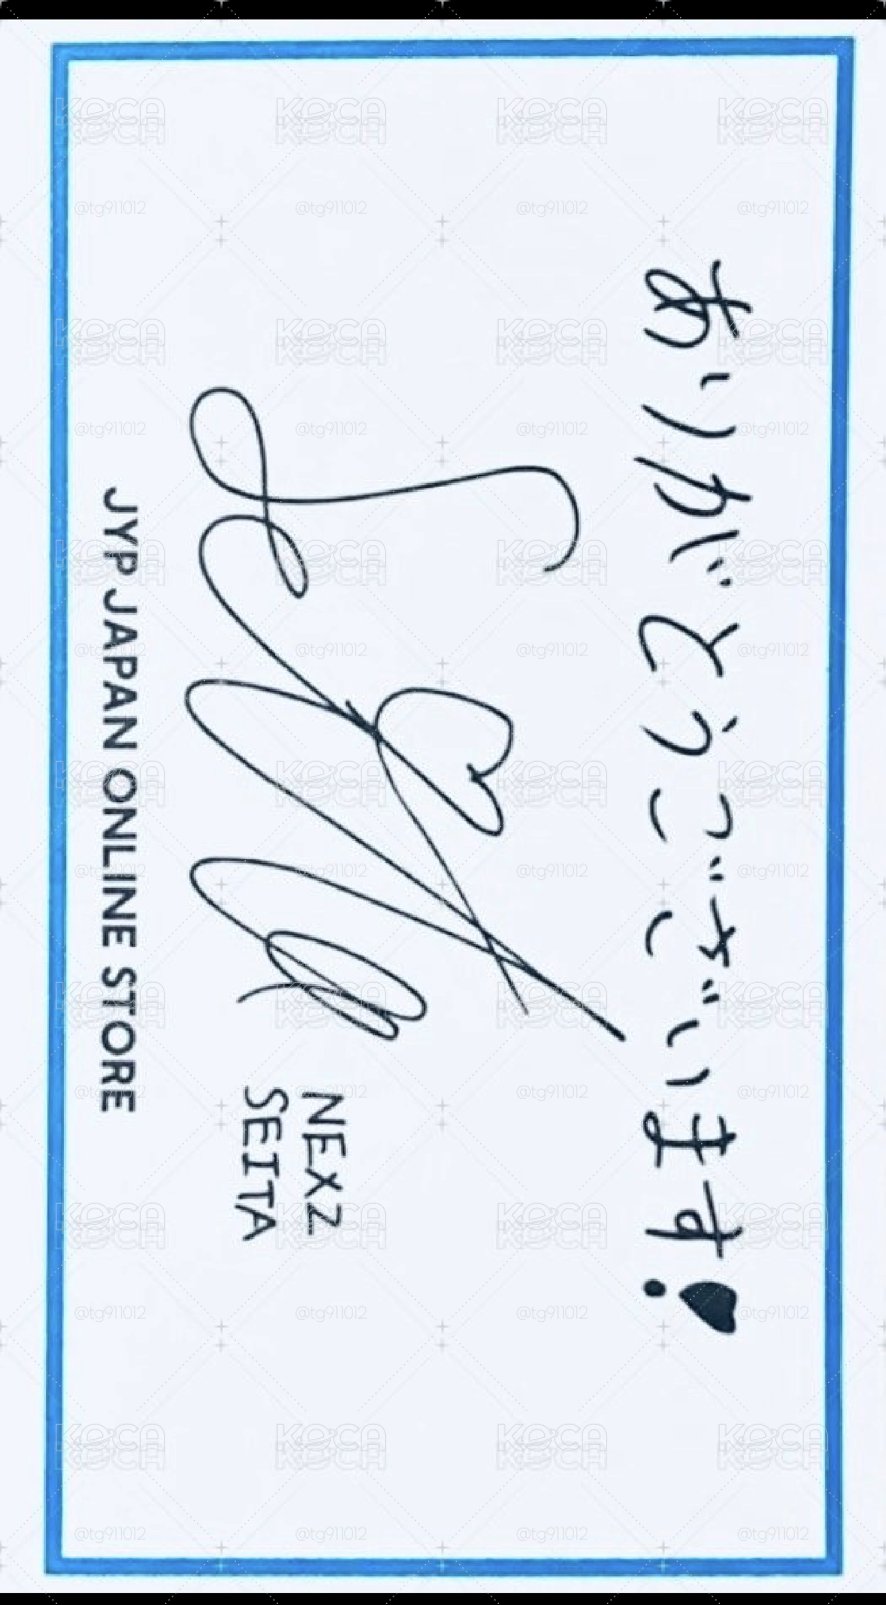 ありがとうございます!
Seita
NEXZ
SEITA
JYP JAPAN ONLINE STORE
KOCA
@tg911012